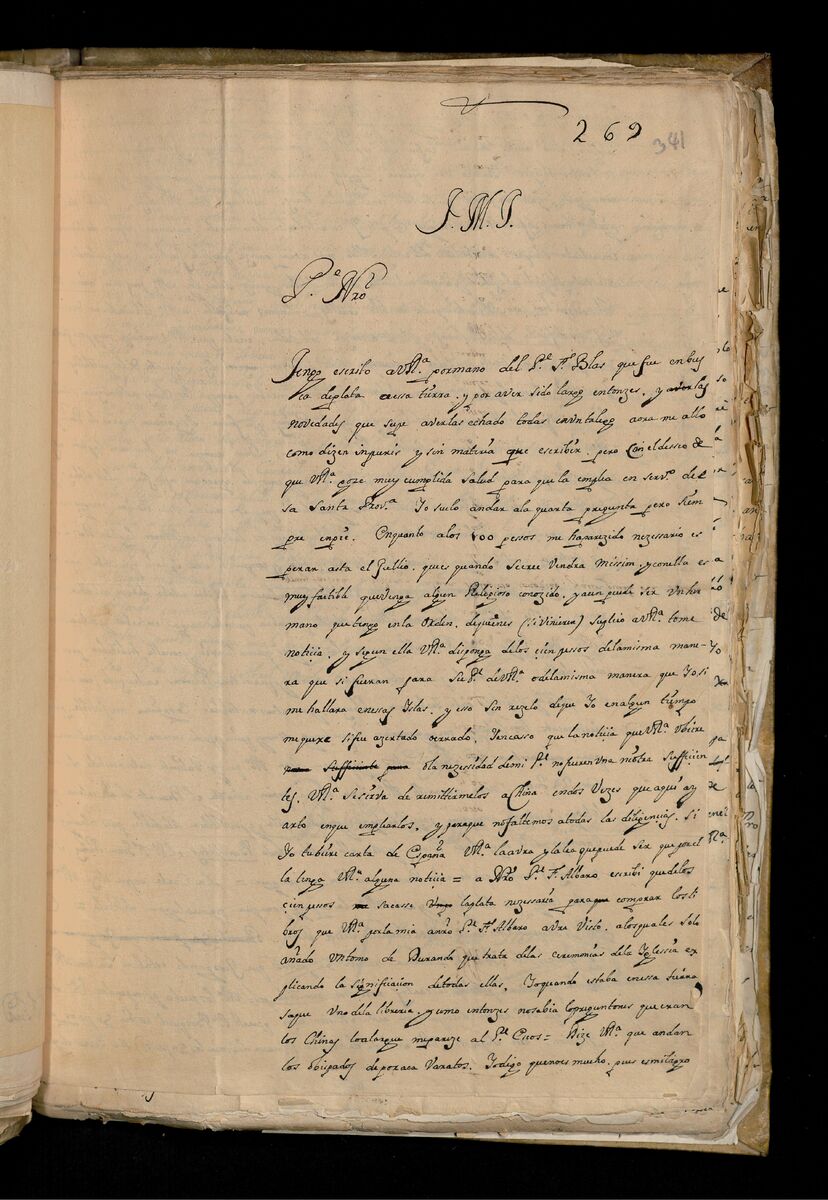 269
341
J. M. J.
P.e Nro
Tengo escrito a VRa. por mano del Pe. Fr. Blas que fue en bus
ca de plata a essa tierra. y por aver sido largo entonzes, y
novedades que supe averlas echado todas en un talego aora me allo
como dizen in puris y sin materia que escribir. pero con el desseo de
que VRa. goze muy cumplida salud para que la emplee en serv.o de es
sa Santa Prov.a Yo suelo andar a la quarta pregunta pero siem
pre en pie. En quanto a los 100 pessos me ha parezido nezessario es
perar asta el Jullio. que es quando se cree vendra mission. y con ella es
muy factible que venga algun Religioso conozido. y aun puede ser un her
mano que tengo en la orden. de quienes (si viniere) suplico a VRa. tome
noticia. y segun ella VRa. disponga de los cien pessos de la misma mane-
ra que si fueran para de VRa. o de la misma manera que Yo si
me hallara en essas Islas. y esso sin rezelo de que Yo en algun tiempo
me quexe si fue azertado o errado. Y en casso que la noticia que VRa. ubiere
o la nezessidad de mi Pe. no fueren una u otra sufficien
tes. VRa. se sirva de remittirmelos a China en dos vezes que aqui ay
arto en que emplearlos. y porque no faltemos a todas las diligencias. si
Yo tubiere carta de España VRa. la avra y la lea que puede ser que por el
la tenga VRa. alguna noticia = a Nro Pe. Fr. Albaro escribi que de los
cien pessos sacasse la plata nezessaria para comprar los li
bros que VRa. por la mia a nro Pe. Fr. Albaro avra visto. a los quales solo
añado un tomo de Durando que trata de las ceremonias de la Iglessia ex
plicando la significacion de todas ellas. Yo quando estaba en essa tierra
saque uno de la libreria. y como entonzes no sabia lo preguntones que eran
los Chinos lo alargue me pareze al Pe. = Dize VRa. que andan
los obispados de por aca varatos. Yo digo que no es mucho. pues es milagro